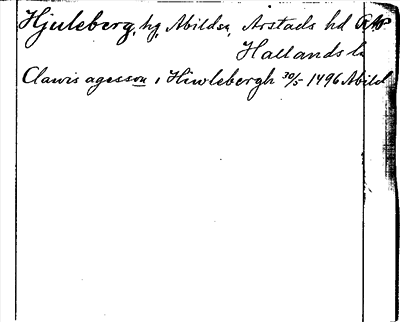 Hjuleberg, hg, Abilds sn, Årstads hd
Hallands l.
Clawis agesson i Hiwlebergh 30/5 1496 Abild